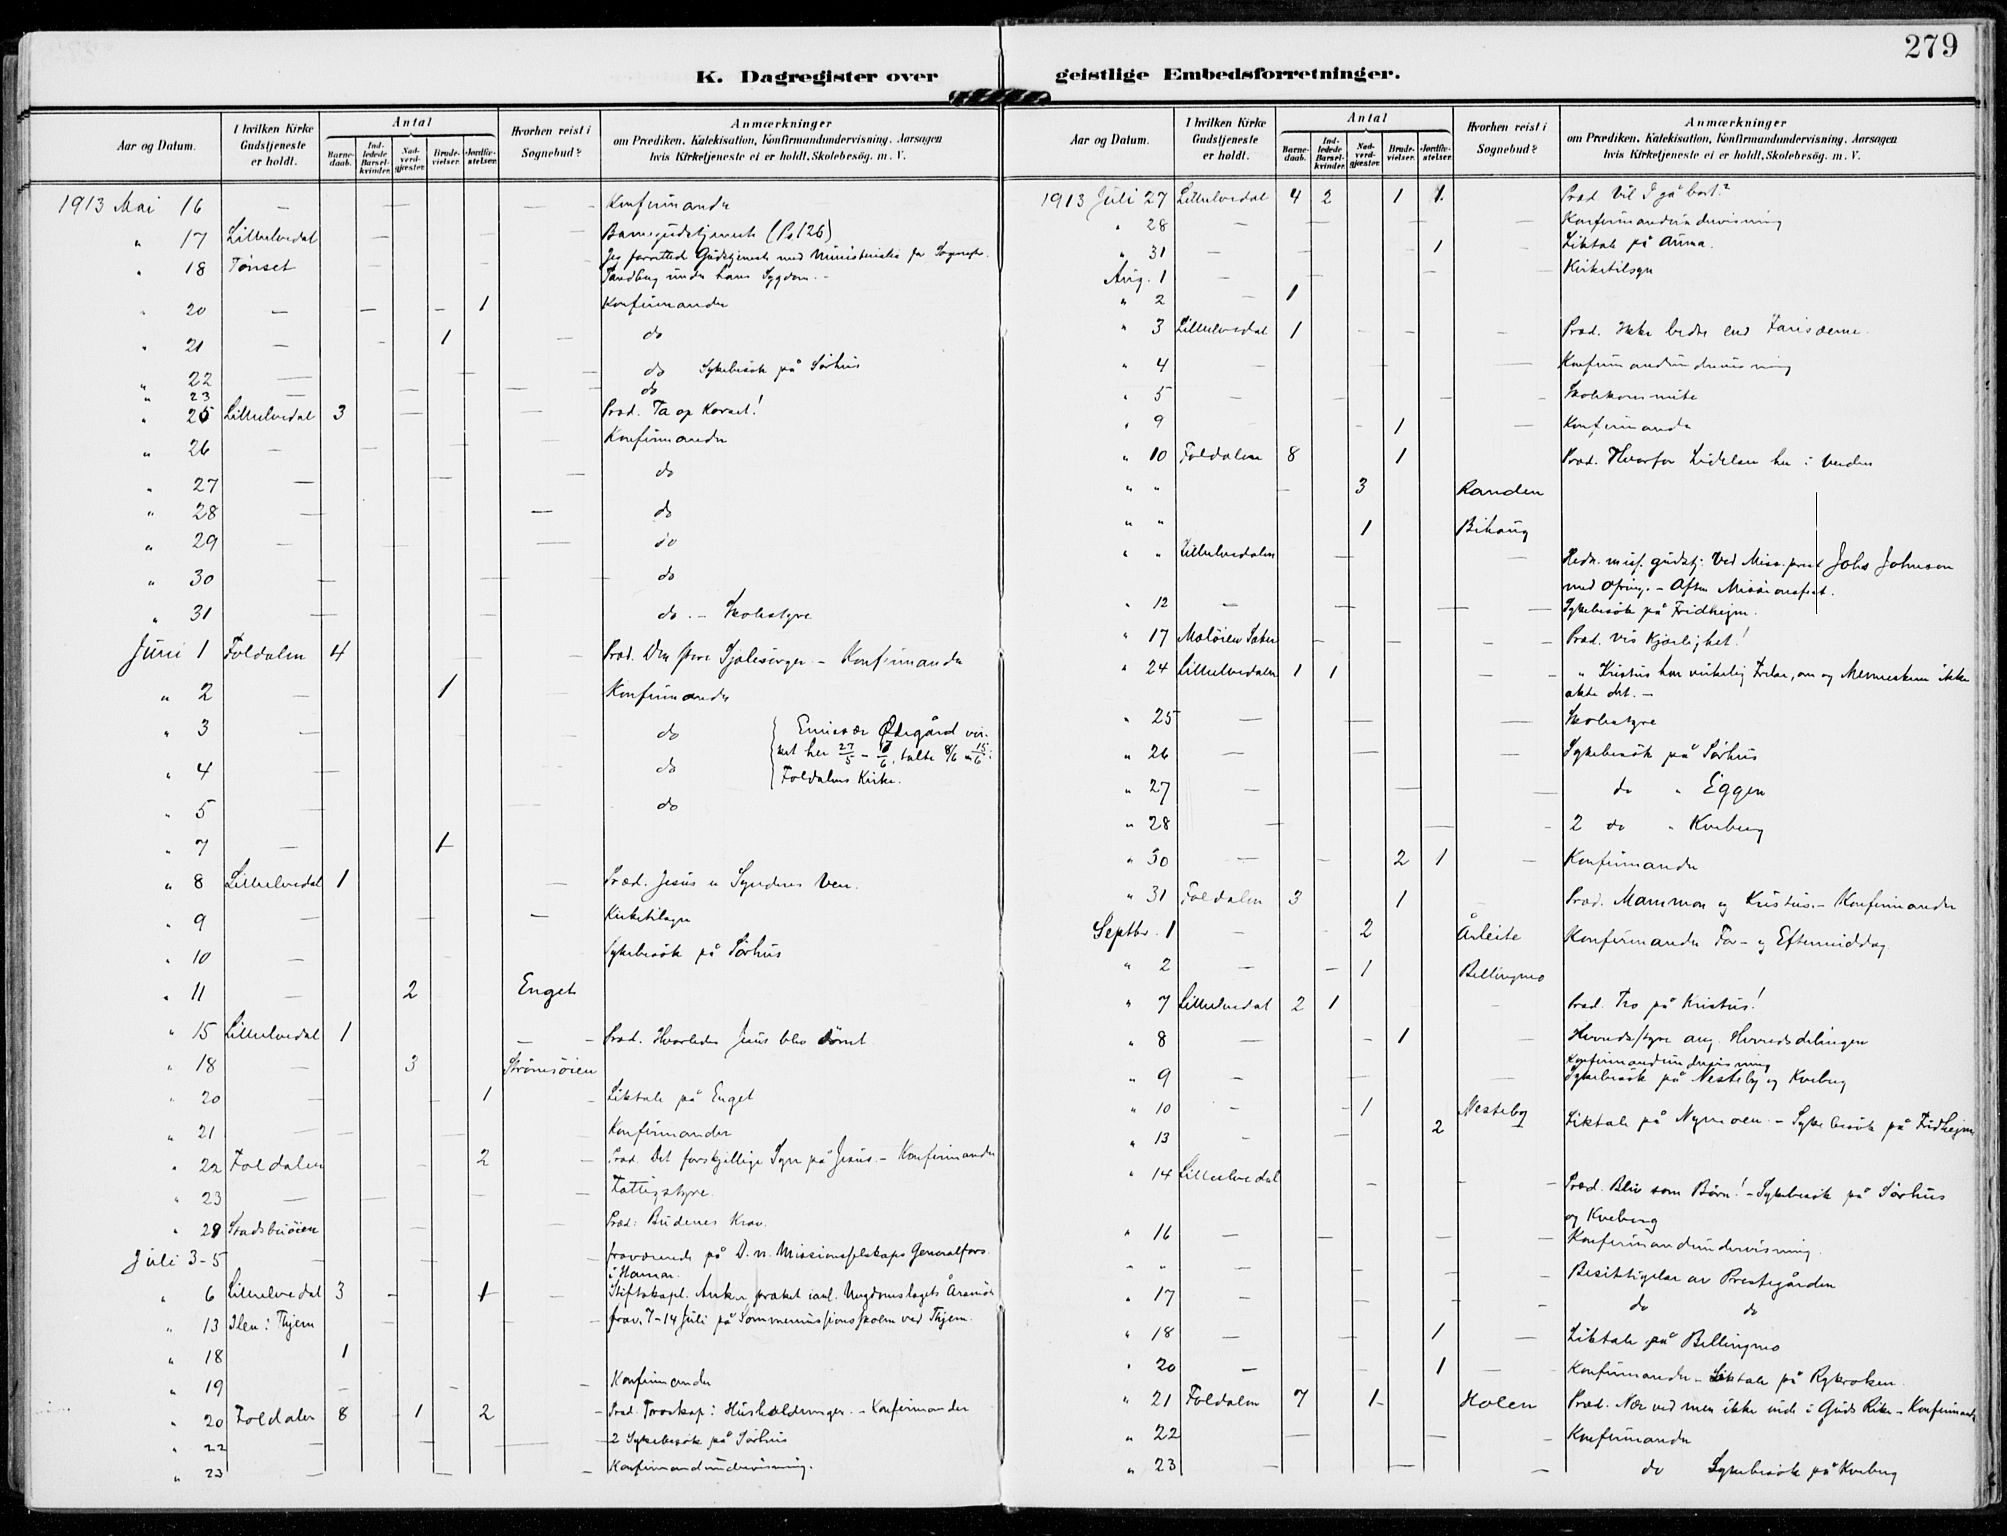 279
K. Dagregister over geistlige Embedsforretninger.
Aar og Datum. | I hvilken Kirke Gudstjeneste er holdt. | Antal | Barnedaab. | Indledede Barselkvinder. | Nadverdgjæster. | Brudevielser. | Jordfæstelser. | Hvorhen reist i Sognebud? | Anmærkninger om Prædiken, Katekisation, Konfirmandundervisning, Aarsagen hvis Kirketjeneste ei er holdt, Skolebesøg. m. V.
1913 Mai 16 — — — Konfirmander
" 17 Lillelvedal — — — Barnegudstjeneste (Ps 126)
" 18 Tønset — — Jeg forrettede Gudstjeneste med Ministerialia for Sognepr.
Sandberg under hans Sygdom. —
" 20 — — — 1 Konfirmander
" 21 — — 1 — do
" 22 — — — do Sykebesøk på Sørhus
" 23 — — — do
" 25 Lillelvedal 3 — — Præd. Ta op Korset!
" 26 — — — Konfirmander
" 27 — — do
" 28 — do
" 29 — — do
" 30 — — — do
" 31 — — do. - Skolestyre
Juni 1 Foldalen 4 — — Præd. Den store Sjælesørger. - Konfirmander
" 2 — 1 — Konfirmander
" 3 — — do Emissær Ødegård vir-
ket her 27/5 - 17/6, talte 8/6 15/6 i
" 4 — — do Foldalens Kirke.
" 5 — do
" 7 — 1
" 8 Lillelvedal 1 — Præd. Jesus Synderes Ven.
" 9 — — — Kirketilsyn
" 10 — Sykebesøk på Sørhus
" 11 — 2 Enget
" 15 Lillelvedal 1 — — Præd. Hvorledes Jesus blev dømt
" 18 — 3 Strømsøien
" 20 — — 1 — Liktale på Enget
" 21 — — — Konfirmander
" 22 Foldalen — 2 Præd. Det forskjellige Syn på Jesus. - Konfirmander
" 23 — — — — Fattigstyre.
" 29 Stadsbuøien — — Præd: Budenes Krav.
Juli 3-5 — — fraværende på D. n. Missionsselskaps Generalfors.
i Hamar.
" 6 Lillelvedal 3 — 1 — Stiftskapl. Anker præket ianl. Ungdomslagets Årsmøte
" 13 Ilen i Thjem frav. 7-14 Juli på Sommermissionsskolen ved Thjem.
" 18 1
" 19 — — — Konfirmander
" 20 Foldalen 8 — 1 2 — Præd. Troskap i Husholdninger. - Konfirmander
" 22 — — — 2 Sykebesøk på Sørhus
" 23 — — — Konfirmandundervisning.
Aar og Datum. | I hvilken Kirke Gudstjeneste er holdt. | Antal | Barnedaab. | Indledede Barselkvinder. | Nadverdgjæster. | Brudevielser. | Jordfæstelser. | Hvorhen reist i Sognebud? | Anmærkninger om Prædiken, Katekisation, Konfirmandundervisning, Aarsagen hvis Kirketjeneste ei er holdt, Skolebesøg. m. V.
1913 Juli 27 Lillelvedal 4 2 1 1. Præd Vil I gå bort?
" 28 — — — Konfirmandundervisning
" 31 — — 1 — Liktale på Auma.
Aug. 1 — — — Kirketilsyn
" 2 — 1
" 3 Lillelvedal 1 — — — Præd. Ikke bedre end Farisæerne.
" 4 — — — Konfirmandundervisning
" 5 — — — — Skolekommite
" 9 1 — Konfirmander
" 10 Foldalen 8 1 Præd. Hvorfor Lidelser her i Verden
" " — 3 Randen
" " 1 Bihaug
" " Lillelvedalen — — Hedn. miss. gudstj. Ved Miss.prest Johs Johnson
med ofring. - Aften Missionsfest.
" 12 — — — — Sykebesøk på Fridhejm.
" 17 Moløien Sæter — — — — Præd. vis Kjærlighet!
" 24 Lillelvedalen 1 1 — — " Kristus har virkelig Frelse, om og Menneskene ikke
akte det. —
" 25 — — — Skolestyre
" 26 — — — Sykebesøk på Sørhus
" 27 — — — do " Eggen
" 28 — — — 2 do " Kveberg
" 30 — — 2 1 — Konfirmander
" 31 Foldalen 3 1 — Præd. Mammon og Kristus. - Konfirmander
Septbr. 1 — — 2 Årleite Konfirmander For- og Eftermiddag
" 2 — — 1 Bellingmo
" 7 Lillelvedal 2 1 — Præd. Tro på Kristus!
" 8 — — 1 — Herredsstyre ang. Herredsdelingen
Konfirmandundervisning
" 9 — — — Sykebesøk på Nesteby og Kveberg
" 10 — — 1 Nesteby
" 13 — — 2 Liktale på Nymoen. - Sykebesøk på Fridhejm
" 14 Lillelvedal — — — Præd. Bliv som Børn! - Sykebesøk på Sørhus
og Kveberg
" 16 — — — Konfirmandundervisning.
" " — — — Besiktigelse av Prestegården
" 17 — — — do do
" 18 — — 1 — Liktale på Bellingmo
" 20 — — 1 — Konfirmander - Liktale på Rykroken.
" 21 Foldalen 7 1 Holen Præd. Nær ved men ikke inde i Guds Rike - Konfirmander
" 22 — — — — Konfirmander
" 23 — — — do Sykebesøk på Kveberg